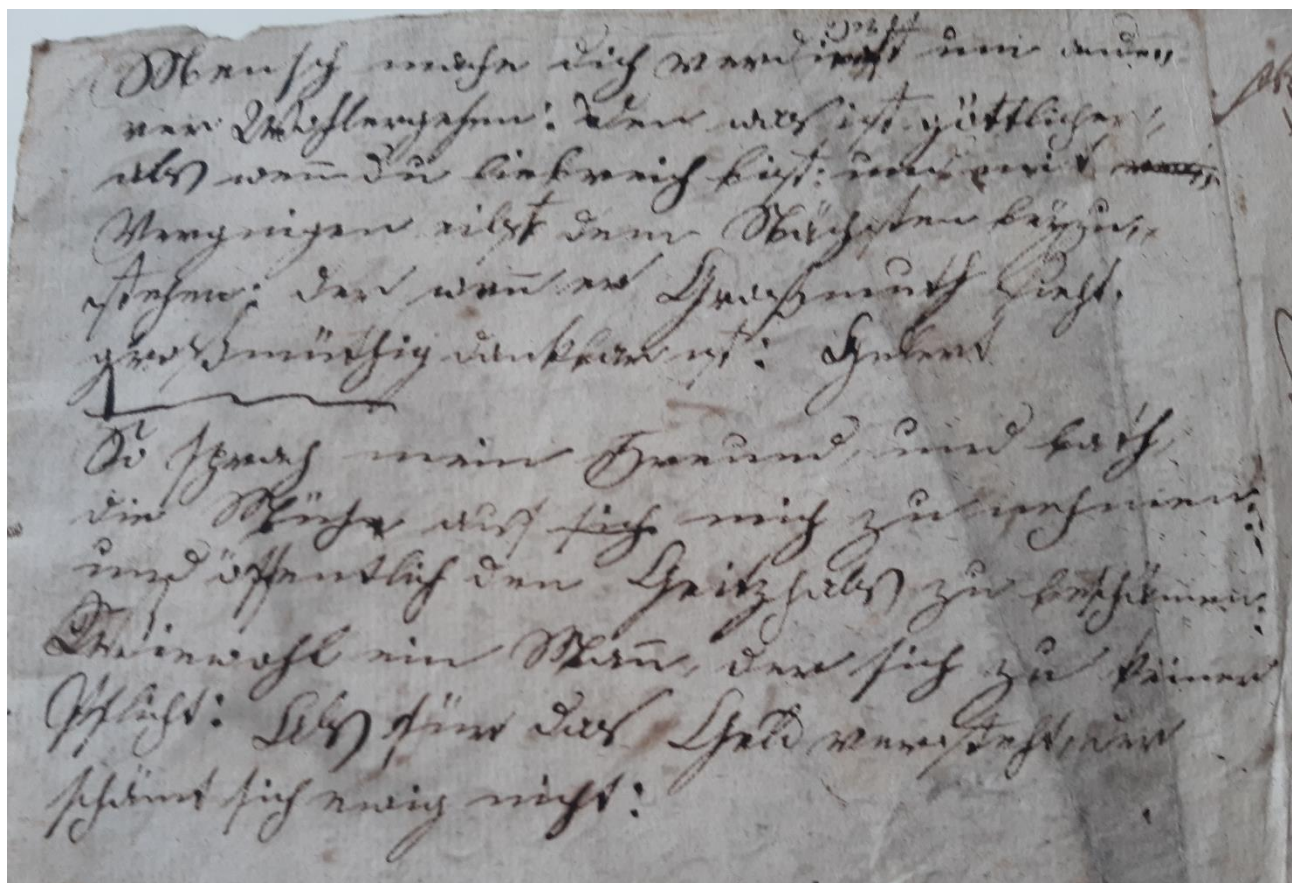 Mensch mache dich verdient um ande„
rer Wohlergehen: Den was ist göttlicher,
als wenn du liebreich bist: und mit
Vergnügen eilst dem Nächsten beyzu„
stehen: der wenn er Großmuth sieht.
großmüthig dankbar ist: Gelert
So sprach mein Freund, und bath
die Mühe auf sich mich zu nehmen:
und öffentlich den Geitzhals zu beschämen:
Wiewohl ein Mann, der sich zu keiner
Pflicht: Als für das Geld versteht, der
schämt sich ewig nicht: